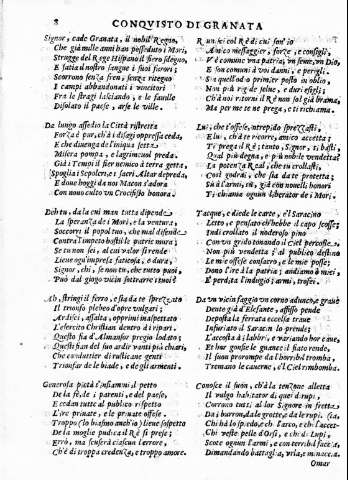 8 CONQVISTO DI GRANATA
Signor, cade Granata, il nobil Regno,
Che già mille anni han posseduto i Mori,
Strugge del Rege Hispano il fiero sdegno,
E satia il nostro sangue i suoi furori;
Scorrono senza fren, senza ritegno
I campi abbandonati i vincitori
Fra le stragi lasciando, e le faville
Desolato il paese, arse le ville.
Da lungo assedio la Città ristretta
Forza è pur, ch'à i disagi oppressa ceda,
E che divenga de l'iniqua setta
Misera pompa, e lagrimosa preda.
Già i Tempi il fier nemico à terra getta,
Spoglia i Sepolcri, e i sacri Altar depreda,
E dove hoggi da noi Macon s'adora
Con novo culto un Crocifisso honora.
Deh tu, da la cui man tutta dipende
La speranza de i Mori, e la ventura,
Soccorri il popol tuo, che mal difende
Contra l'impeto hostil le patrie mura;
Se tu non sei, al cui valor s'rende
Lieve ogn'impresa faticosa, e dura,
Signor, chi, se non tu, che tutto puoi,
Può dal giogo vicin sottrarre i tuoi?
Ah, stringi il ferro, e sia da te sprezzato
Il trionfo plebeo d'opre vulgari;
Ardisci, assalta, opprimi inaspettato
L'esercito Christian dentro i ripari.
Questo fia d'Almansor pregio lodato;
Questi fian del suo ardir vanti più chiari,
Che condottier di rusticane genti
Trionfar de le biade, e de gli armenti.
Generosa pietà t'infiammi il petto
De la fè, de i parenti, e del paese,
E cedan tutte al publico rispetto
L'ire private, e le private offese.
Troppo (lo biasmo anch'io) lieve sospetto
De la moglie pudica il Rè si prese;
Errò, ma scuserà ciascun l'errore,
Ch'è di troppa credenza, e troppo amore.
Raunisci col Rè di chi son'io
Amico messaggier, forze, e consigli,
V'è comune una patria, un sente, un Dio,
E son comuni à voi danni, e perigli.
Ei quell'odio primier posto in oblio,
Non più rigide selve, e duri esigli;
Ch'à noi ritorni il Rè non sol già brama,
Ma per me te ne prega, e ti richiama.
Lui, che t'offese, intrepido sprezzasti;
E lui, ch'à te ricorre, amico accetta;
Ti prega il Rè; tanto, Signor, ti basti,
Qual più degna, e più nobile vendetta?
La potenza real, che tu crollasti,
Così godrai, che sia da te protetta;
Sù à l'armi, sù, già con novelli honori
Ti chiama ognun liberator de i Mori.
Tacque, e diede le carte, e'l Saracino
Letto, e pensato ch'hebbe il capo scosse;
Indi crollato il noderoso pino
Con un grido tonando il Ciel percosse.
Non più vendetta; al publico destino
Le mie offese consacro, e le mie posse;
Dono l'ire à la patria; andiamo à i nuovi
E perda l'indugio; armi, trofei.
Da un vicin faggio un corno adunco, e grave
Dente già d'Elefante, assiso pende
Deposta la ferrata eccelsa trave
Infuriato il Saracin lo prende;
L'accosta à i labbri, e variando hor cave,
Et hor gonfie le guance il fiato rende.
Il suon prorompe da l'horribil tromba,
Tremano le caverne, e'l Ciel rimbomba.
Conosce il suon, ch'à la tenzone alletta
Il vulgo habitator di quei dirupi,
Corrono tutti al lor Signore in fretta
Da i burron, da le grotte, e da le rupi.
Chi hà lo spiedo, e chi l'arco, e chi l'accetta
Chi veste pelle d'Orsi, e chi di Lupi,
Scote ognun l'armi, e con terribil faccia,
Dimandando battaglia, urla, e minaccia.
Omar